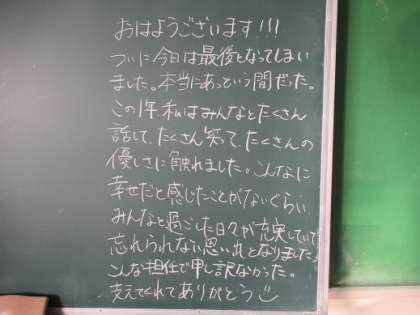 おはようございます!!!
ついに今日は最後となってしまい
ました。本当にあっという間だった。
この1年私はみんなとたくさん
話して、たくさん笑って、たくさんの
優しさに触れました。こんなに
幸せだと感じたことがないくらい
みんなと過ごした日々が充実していて
忘れられない思い出となりました!
こんな担任で申し訳なかった。
支えてくれてありがとう